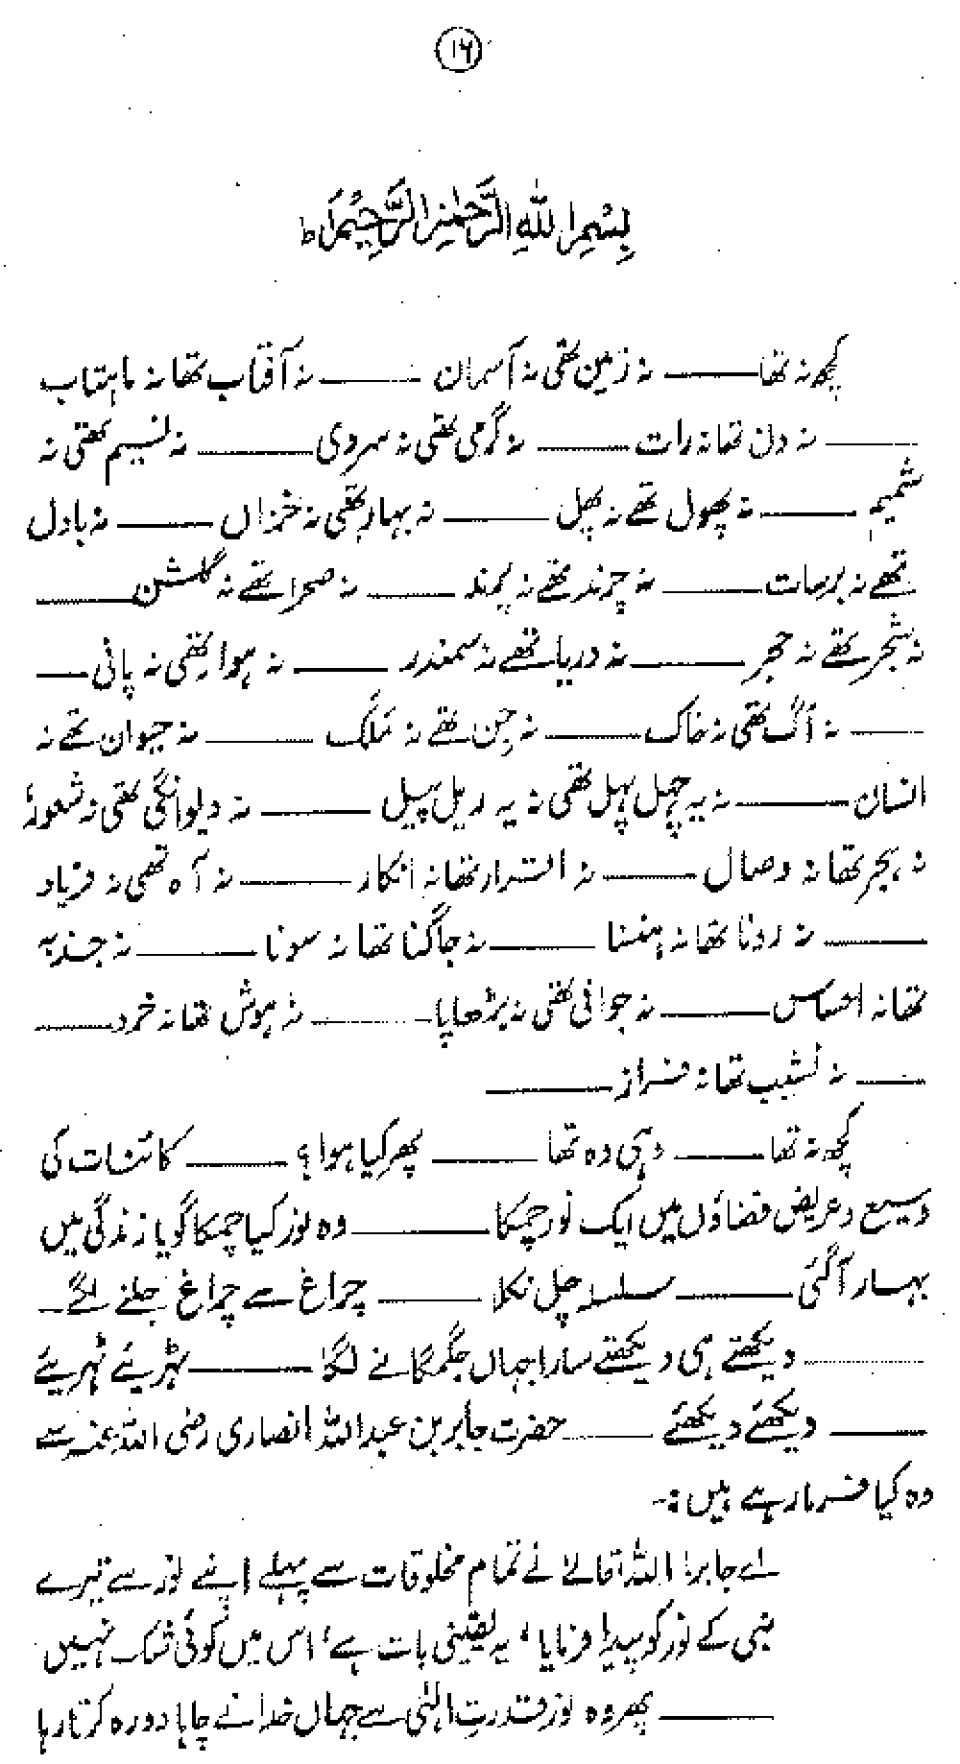 ۱۶
بِسْمِ اللهِ الرَّحْمٰنِ الرَّحِيْمِ ط
کچھ نہ تھا ——— نہ زمین تھی نہ آسمان ——— نہ آفتاب تھا نہ ماہتاب
——— نہ دن تھا نہ رات ——— نہ گرمی تھی نہ سردی ——— نہ نسیم تھی نہ
شمیم ——— نہ پھول تھے نہ پھل ——— نہ بہار تھی نہ خزاں ——— نہ بادل
تھے نہ برسات ——— نہ چرند تھے نہ پرند ——— نہ صحرا تھے نہ گلشن ———
نہ شجر تھے نہ حجر ——— نہ دریا تھے نہ سمندر ——— نہ ہوا تھی نہ پانی ———
——— نہ آگ تھی نہ خاک ——— نہ جن تھے نہ مَلَک ——— نہ حیوان تھے نہ
انسان ——— نہ یہ چہل پہل تھی نہ یہ ریل پیل ——— نہ دیوانگی تھی نہ شعور
نہ ہجر تھا نہ وصال ——— نہ اقرار تھا نہ انکار ——— نہ آہ تھی نہ فریاد
——— نہ رونا تھا نہ ہنسنا ——— نہ جاگنا تھا نہ سونا ——— نہ جذبہ
تھا نہ احساس ——— نہ جوانی تھی نہ بڑھاپا ——— نہ ہوش تھا نہ خرد ———
——— نہ نشیب تھا نہ فراز ———
کچھ نہ تھا ——— وہی وہ تھا ——— پھر کیا ہوا ؟ ——— کائنات کی
وسیع و عریض فضاؤں میں ایک نور چمکا ——— وہ نور کیا چمکا گویا زندگی میں
بہار آگئی ——— سلسلہ چل نکلا ——— چراغ سے چراغ جلنے لگے ـ
——— دیکھتے ہی دیکھتے سارا جہاں جگمگانے لگا ——— ٹہریئے ٹہریئے
——— دیکھئے دیکھئے ——— حضرت جابر بن عبداللہ انصاری رضی اللہ عنہ سے
وہ کیا فرما رہے ہیں :۔
اے جابر! اللہ تعالےٰ نے تمام مخلوقات سے پہلے اپنے نور سے تیرے
نبی کے نور کو پیدا فرمایا ، یہ یقینی بات ہے ، اس میں کوئی شک نہیں
——— پھر وہ نور قدرتِ الٰہی سے جہاں خدا نے چاہا دورہ کرتا رہا